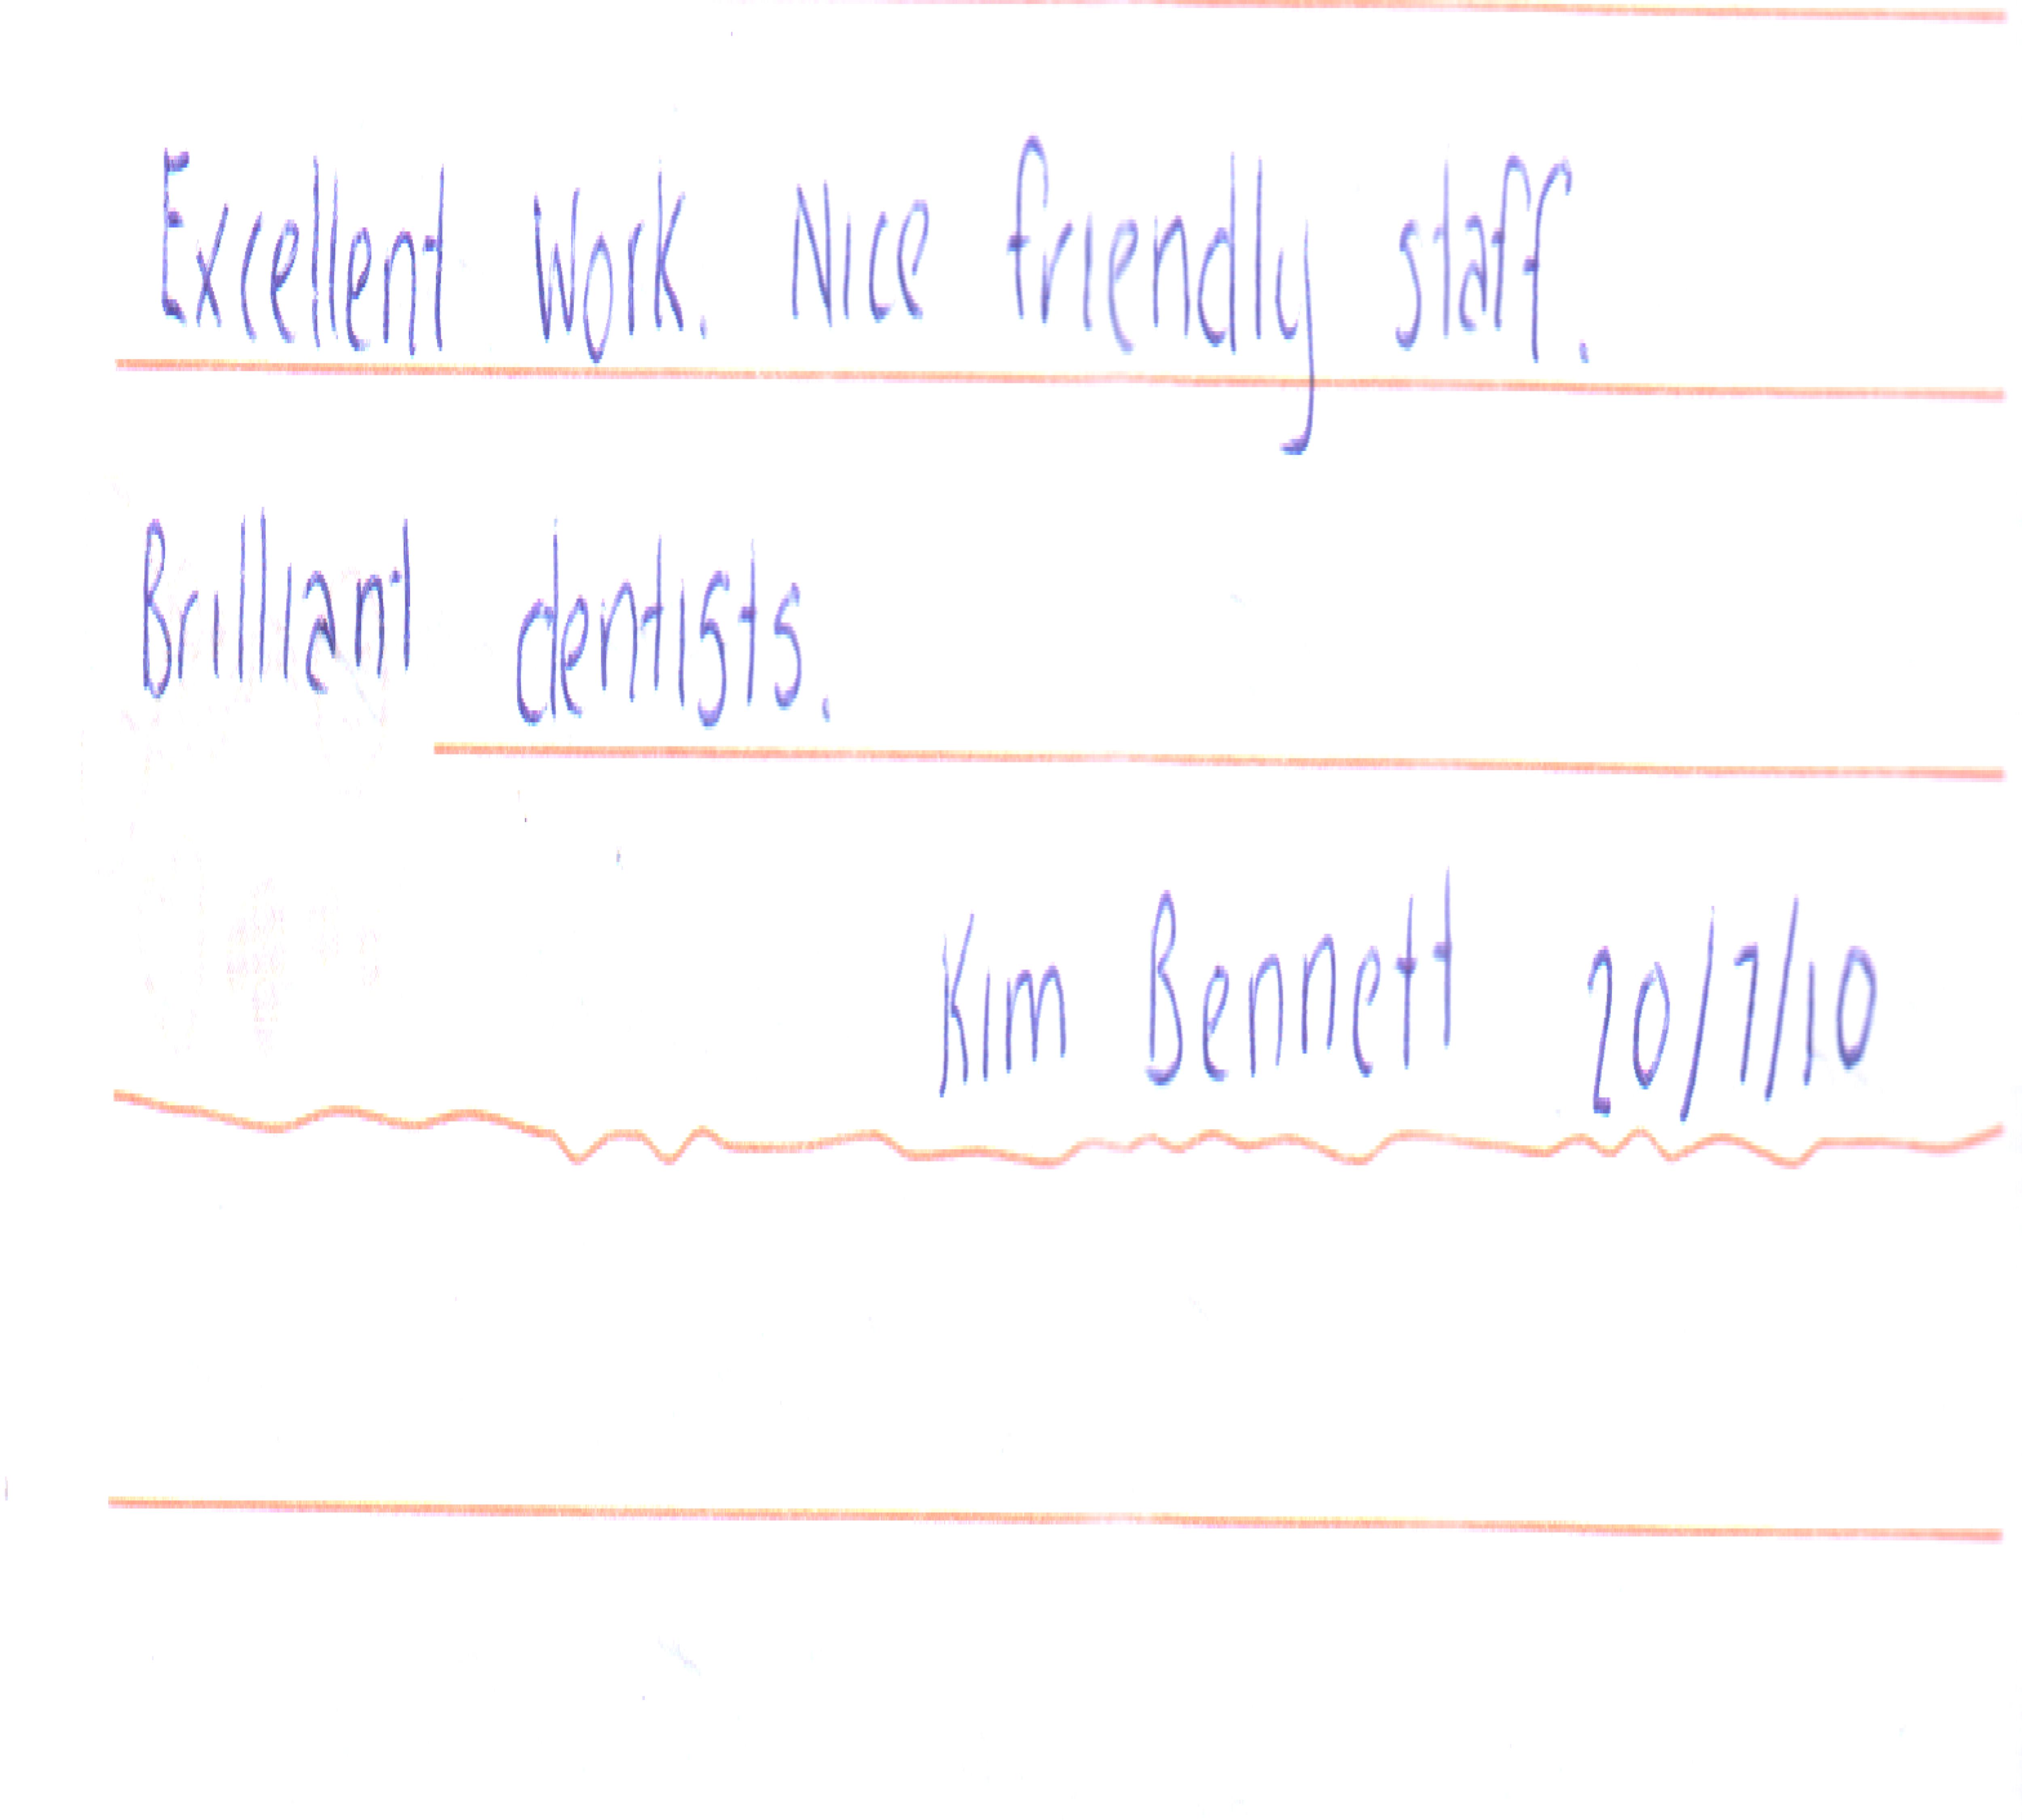 Excellent work. Nice friendly staff.
Brilliant dentists.
Kim Bennett 20/7/10